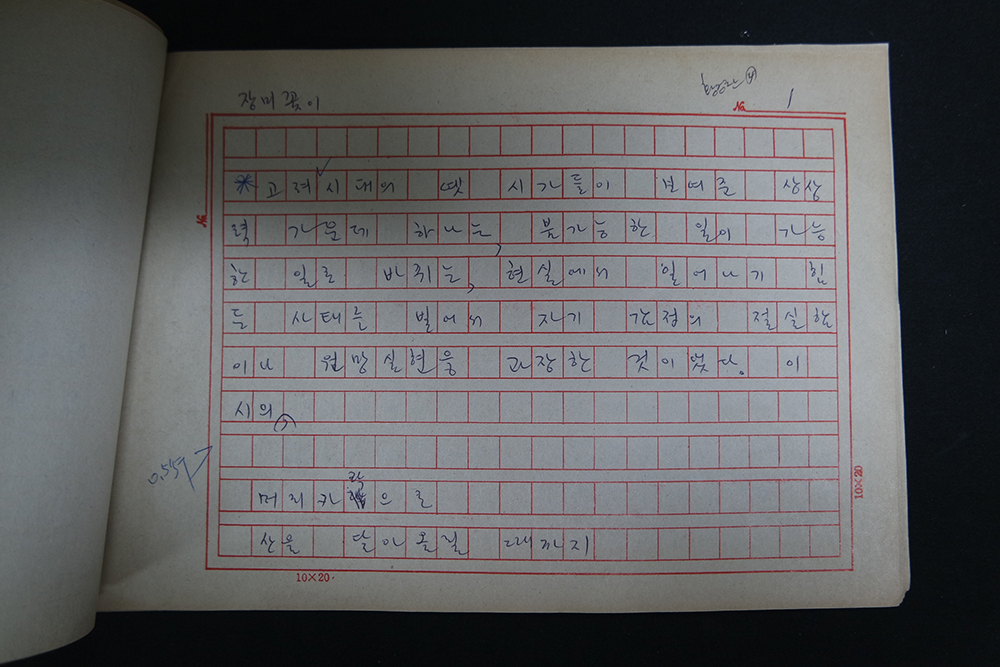 장미꽂이
No. 1
* 고려시대의 옛 시가들이 보여준 상상
력 가운데 하나는, 불가능한 일이 가능
한 일로 바뀌는, 현실에서 일어나기 힘
든 사태를 빌어서 자기 감정의 절실함
이나 원망실현을 과장한 것이었다. 이
시의
머리카락으로
산을 달아올릴 때까지
No.
10×20
10×20